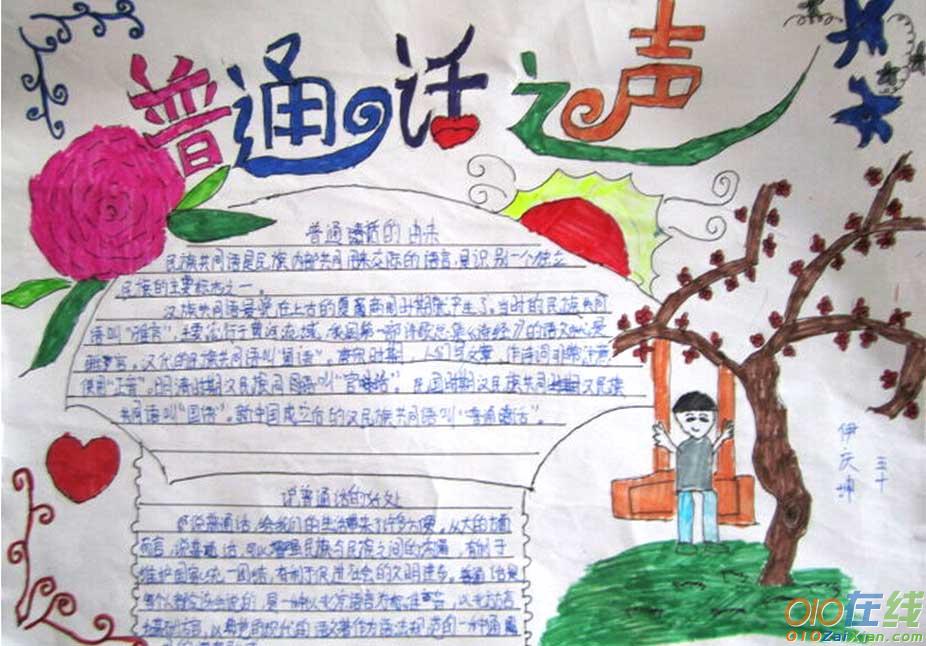 普通话之声
普通话的由来
民族共同语是民族内部共同用来交际的语言，是识别一个独立
民族的主要标志之一。
汉族共同语最早在上古的夏商周时期就产生了。当时的民族共同
语叫"雅言"，主要流行于黄河流域，我国第一部诗歌总集《诗经》的语言就是
雅言。汉代的民族共同语叫"通语"。唐宋时期，人们写文章，作诗词非常注意
使用"正音"。明清时期汉民族共同语叫"官话"。民国时期汉民族共同 汉民族
共同语叫"国语"。新中国成立后的汉民族共同语叫"普通话"。
说普通话的好处
说普通话，给我们的生活带来了许多方便。从大的方面
而言，说普通话，可以增强民族与民族之间的沟通，有利于
维护国家统一团结，有利于促进社会的文明进步。普通话是
每个人都应该会说的，是一种以北京语音为标准音，以北方方言
为基础方言，以典范的现代的语文著作为语法规范的一种通
伊庆坤
五十
010在线
010ZaiXian.com